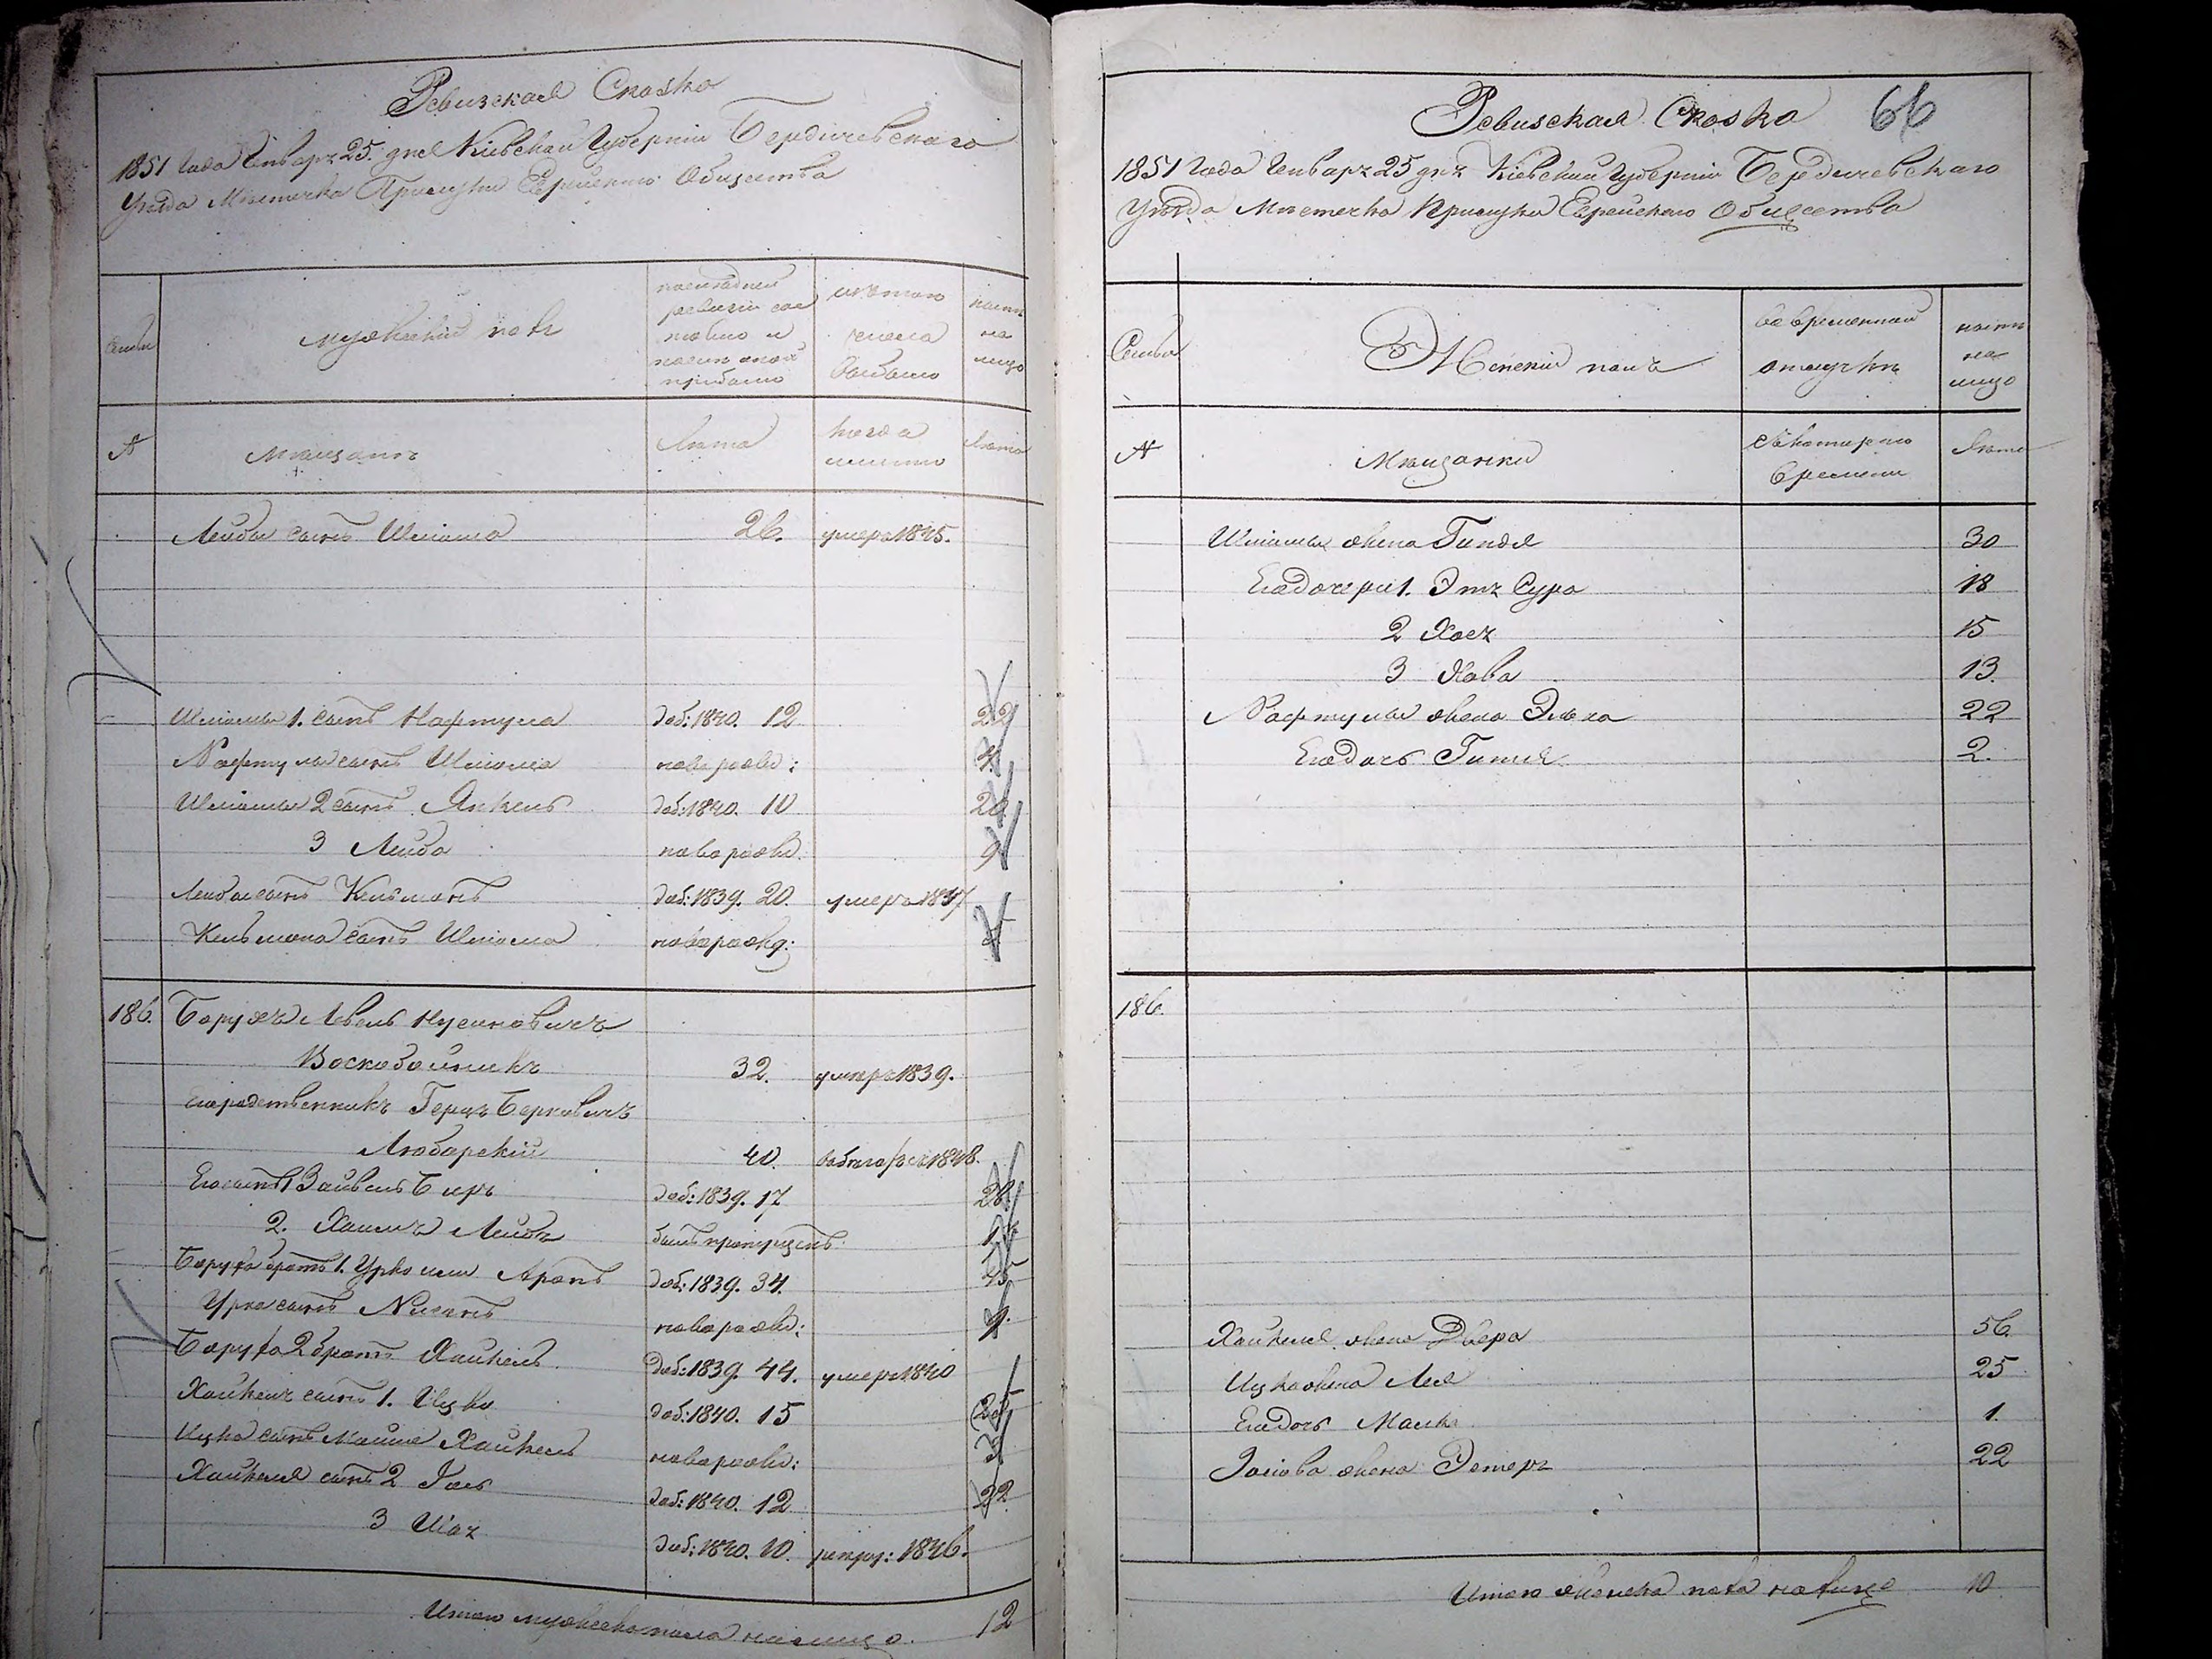 Ревизская Сказка
1851 Года Генваря 25. дня Кіевской Губерніи Бердичевскаго
Уѣзда Мѣстечка Прилуки Еврейскаго Общества
Семьи
мужескій полъ
последней
ревизіи сос
тояло и
после оной
прибыло
изъ того
числа
выбыло
ныне
на
лицо
№
Мѣщане
Лѣта
когда
именно
Лѣта
Лейбы сынъ Шліома 26. умеръ 1845.
Шліомы 1. сынъ Нафтула доб: 1840. 12 22
Нафтулы сынъ Шліома новорожд: 4
Шліомы 2 сынъ Янкель доб: 1840. 10 20
3 Лейба новорожд. 9
Лейбы сынъ Кельманъ доб: 1839. 20. умеръ 1847
Кельмана сынъ Шліома новорожд:
186. Борухъ Левель Нусиновичъ
Воскобойникъ 32. умеръ 1839.
его родственникъ Герцъ Берковичъ
Любарскій 40. 1848.
Его сынъ 1 Зайвель Беръ доб: 1839. 17 28
2. Хаимъ Лейба былъ пропущенъ
Боруха братъ 1. Урко или Аронъ доб: 1839. 34. 45
Урка сынъ Нисанъ новорожд: 9.
Боруха 2 братъ Хайкель доб: 1839. 44. умеръ 1840
Хайкеля сынъ 1. Ицко доб: 1840. 15 25
Ицка сынъ Мошко Хайкель новорожд: 3
Хайкеля сынъ 2 Іось доб: 1840. 12 22
3 Шая доб: 1840. 10. рекрут: 1846.
Итого мужеска пола на лицо. 12
Ревизская Сказка 66
1851 Года Генваря 25 дня Кіевской Губерніи Бердичевскаго
Уѣзда Мѣстечка Прилуки Еврейскаго Общества
Семьи
Женскій полъ
во временной
отлучкѣ
ныне
на
лицо
№
Мѣщанки
съ котораго
времени
Лѣта
Шліомы жена Гиндя 30
Его дочери 1. Эта Сура 18
2 Хая 15
3 Хава 13.
Нафтулы жена Элька 22
Его дочь Гитля 2.
186.
Хайкеля жена Двера 56.
Ицка жена Лея 25
Его дочь Малка 1.
жена Эстеръ 22
Итого женска пола на лице 10